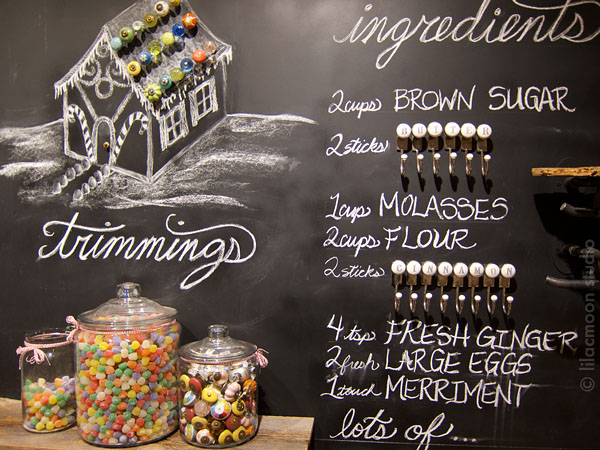 ingredients
2cups BROWN SUGAR
2 sticks BUTTER
1cup MOLASSES
2cups FLOUR
2 sticks CINNAMON
4 tsps FRESH GINGER
2 fresh LARGE EGGS
1 touch MERRIMENT
lots of ...
trimmings
© lilacmoon studio